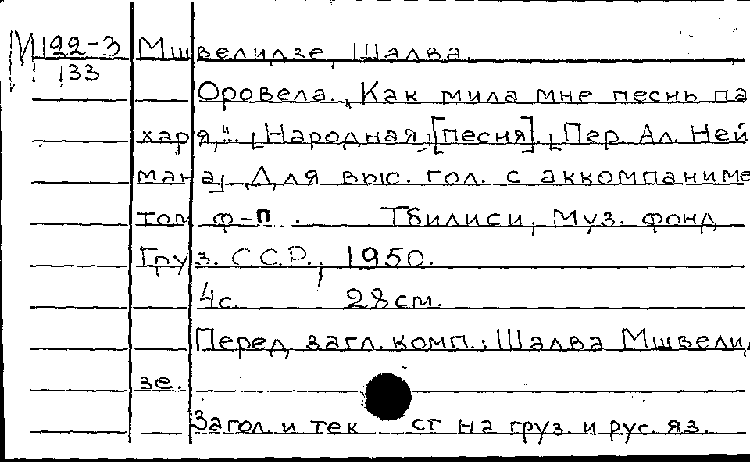 М122-3 Мшвелидзе, Шалва.
133
Оровела. „Как мила мне песнь па
харя,". [Народная [песня]. [Пер. Ал. Ней
мана]. Для выс. гол. с аккомпаниме
том ф-п. Тбилиси, Муз. фонд
Груз. ССР, 1950.
4с. 28см.
Перед загл. комп.: Шалва Мшвелид
зе.
Загол. и текст на груз. и рус. яз.